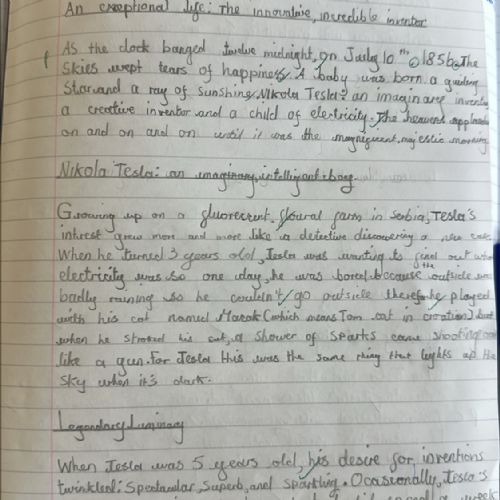 An exceptional life: The innovative, incredible inventor
As the clock banged twelve midnight, on July 10th, 1856. The
Skies wept tears of happiness. A baby was born a guiding
Star and a ray of sunshine. Nikola Tesla: an imaginary inventor
a creative inventor and a child of electricity. The heavens applauded
on and on and on until it was the magnificent, majestic morning
Nikola Tesla: an imaginary, intelligent boy
Growing up on a fluorescent, floural farm in Serbia, Tesla's
intrest grew more and more like a detective discovering a new case.
When he turned 3 years old, Tesla was wanting to find out what
electricity was so one day, he was bored because outside was
badly raining so he couldn't go outside therefore he played
with his cat named Macak (which means Tom cat in croation) but
when he stroked his cat, a shower of sparks came shooting out
like a gun. For Tesla this was the same thing that lights up the
sky when it's dark.
Legendary Luminary
When Tesla was 5 years old, his desire for inventions
twinkled: Spectacular, Superb, and sparkling. Ocasionally, Tesla's